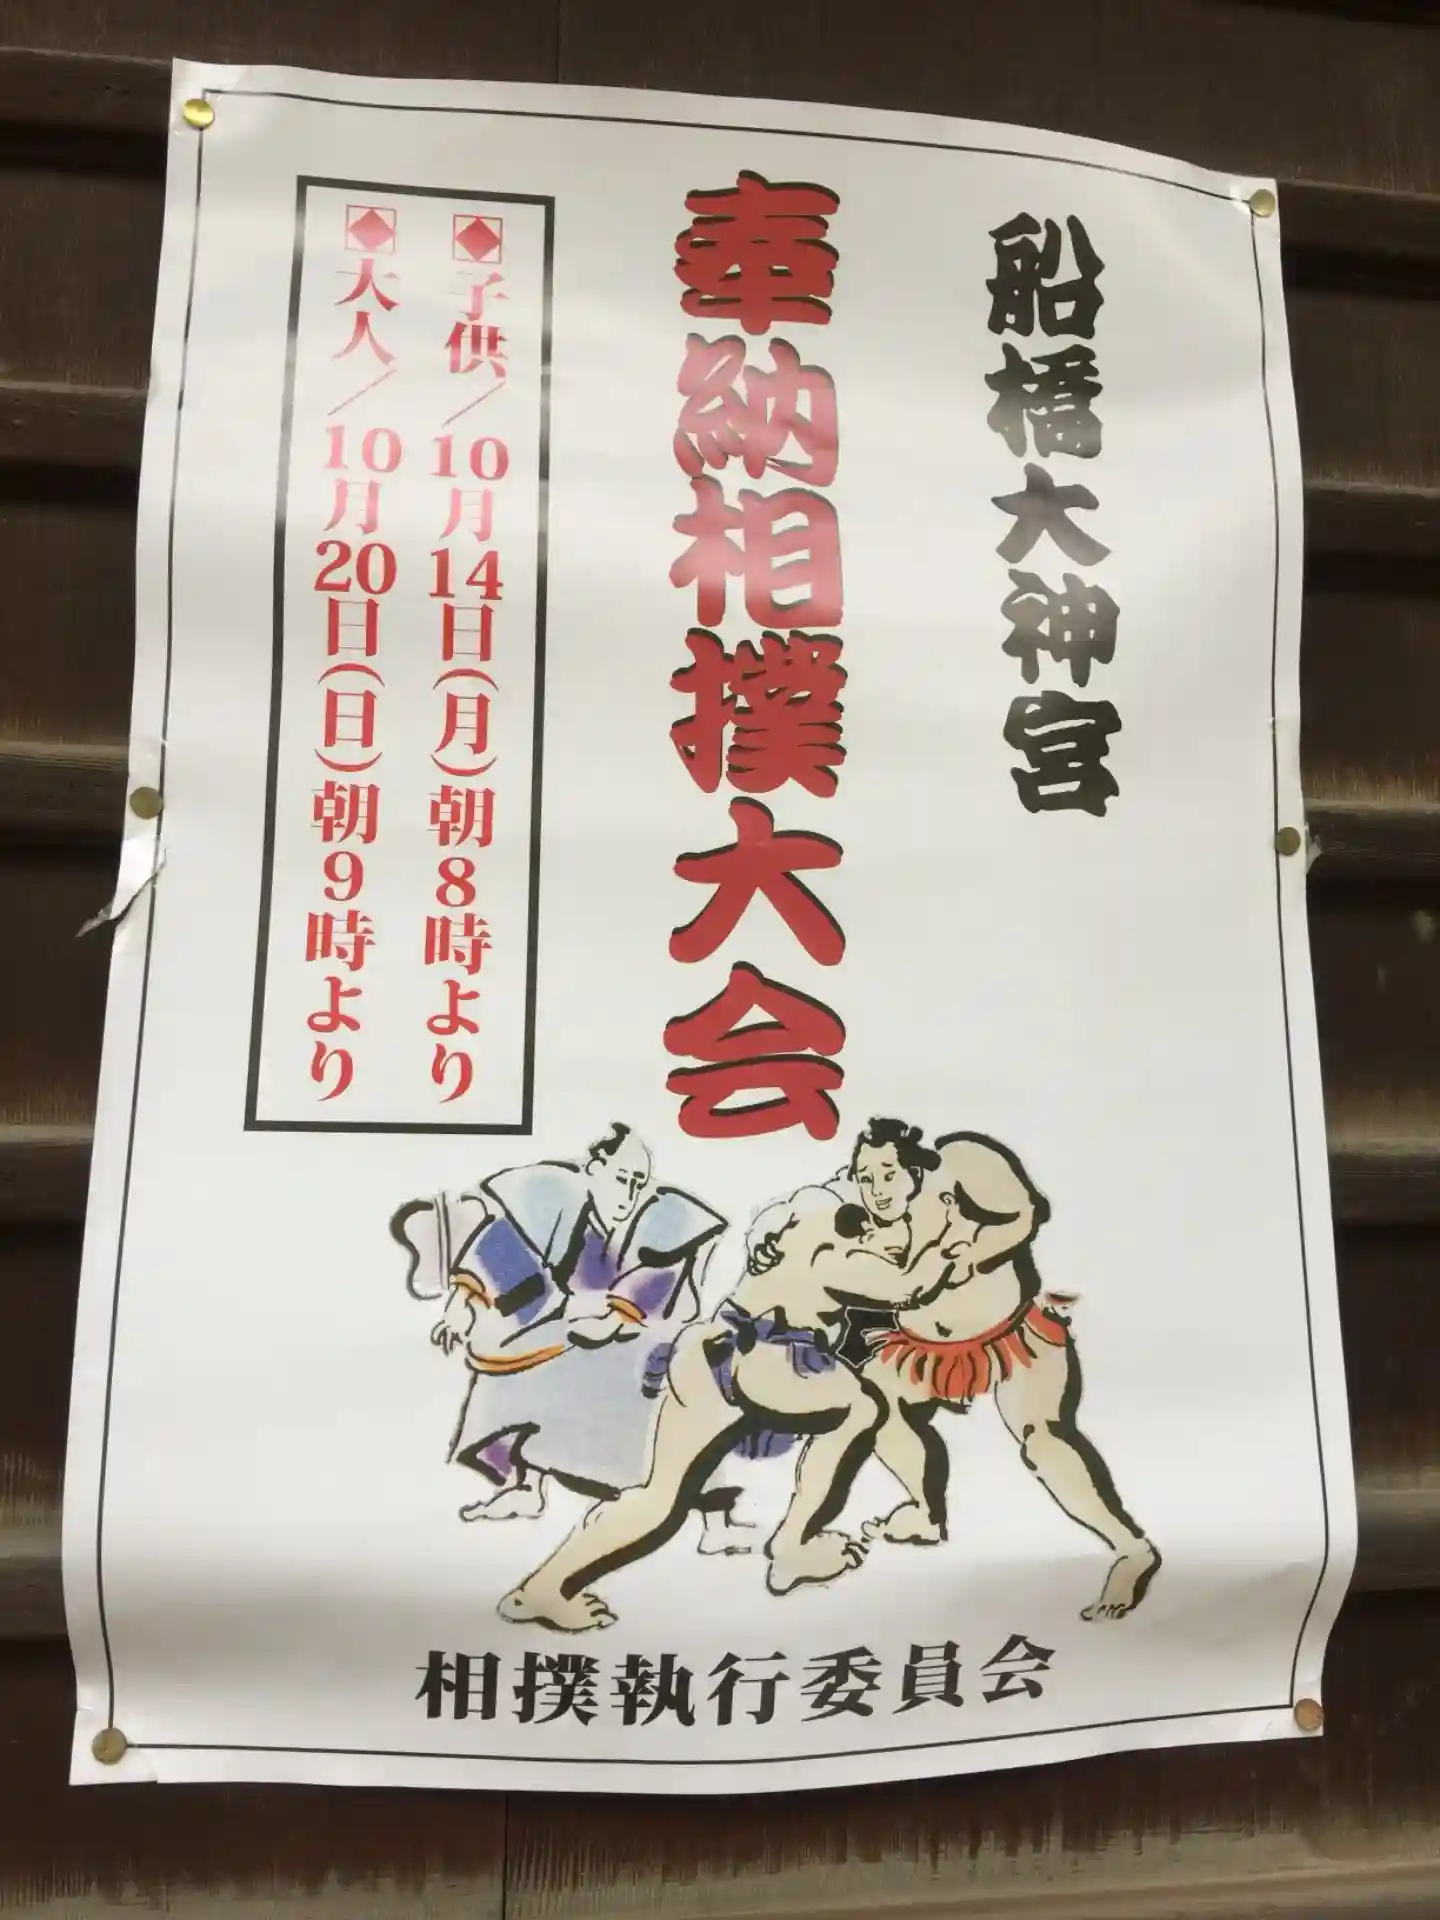 船橋大神宮
奉納相撲大会
◆子供／10月14日(月)朝8時より
◆大人／10月20日(日)朝9時より
相撲執行委員会